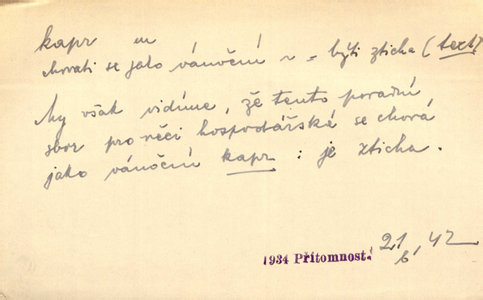 kapr m
chovati se jako vánoční ~ = býti zticha (text)
My však vidíme, že tento poradní
sbor pro věci hospodářské se chová
jako vánoční kapr : je zticha.
1934 Přítomnost. 21/6, 42